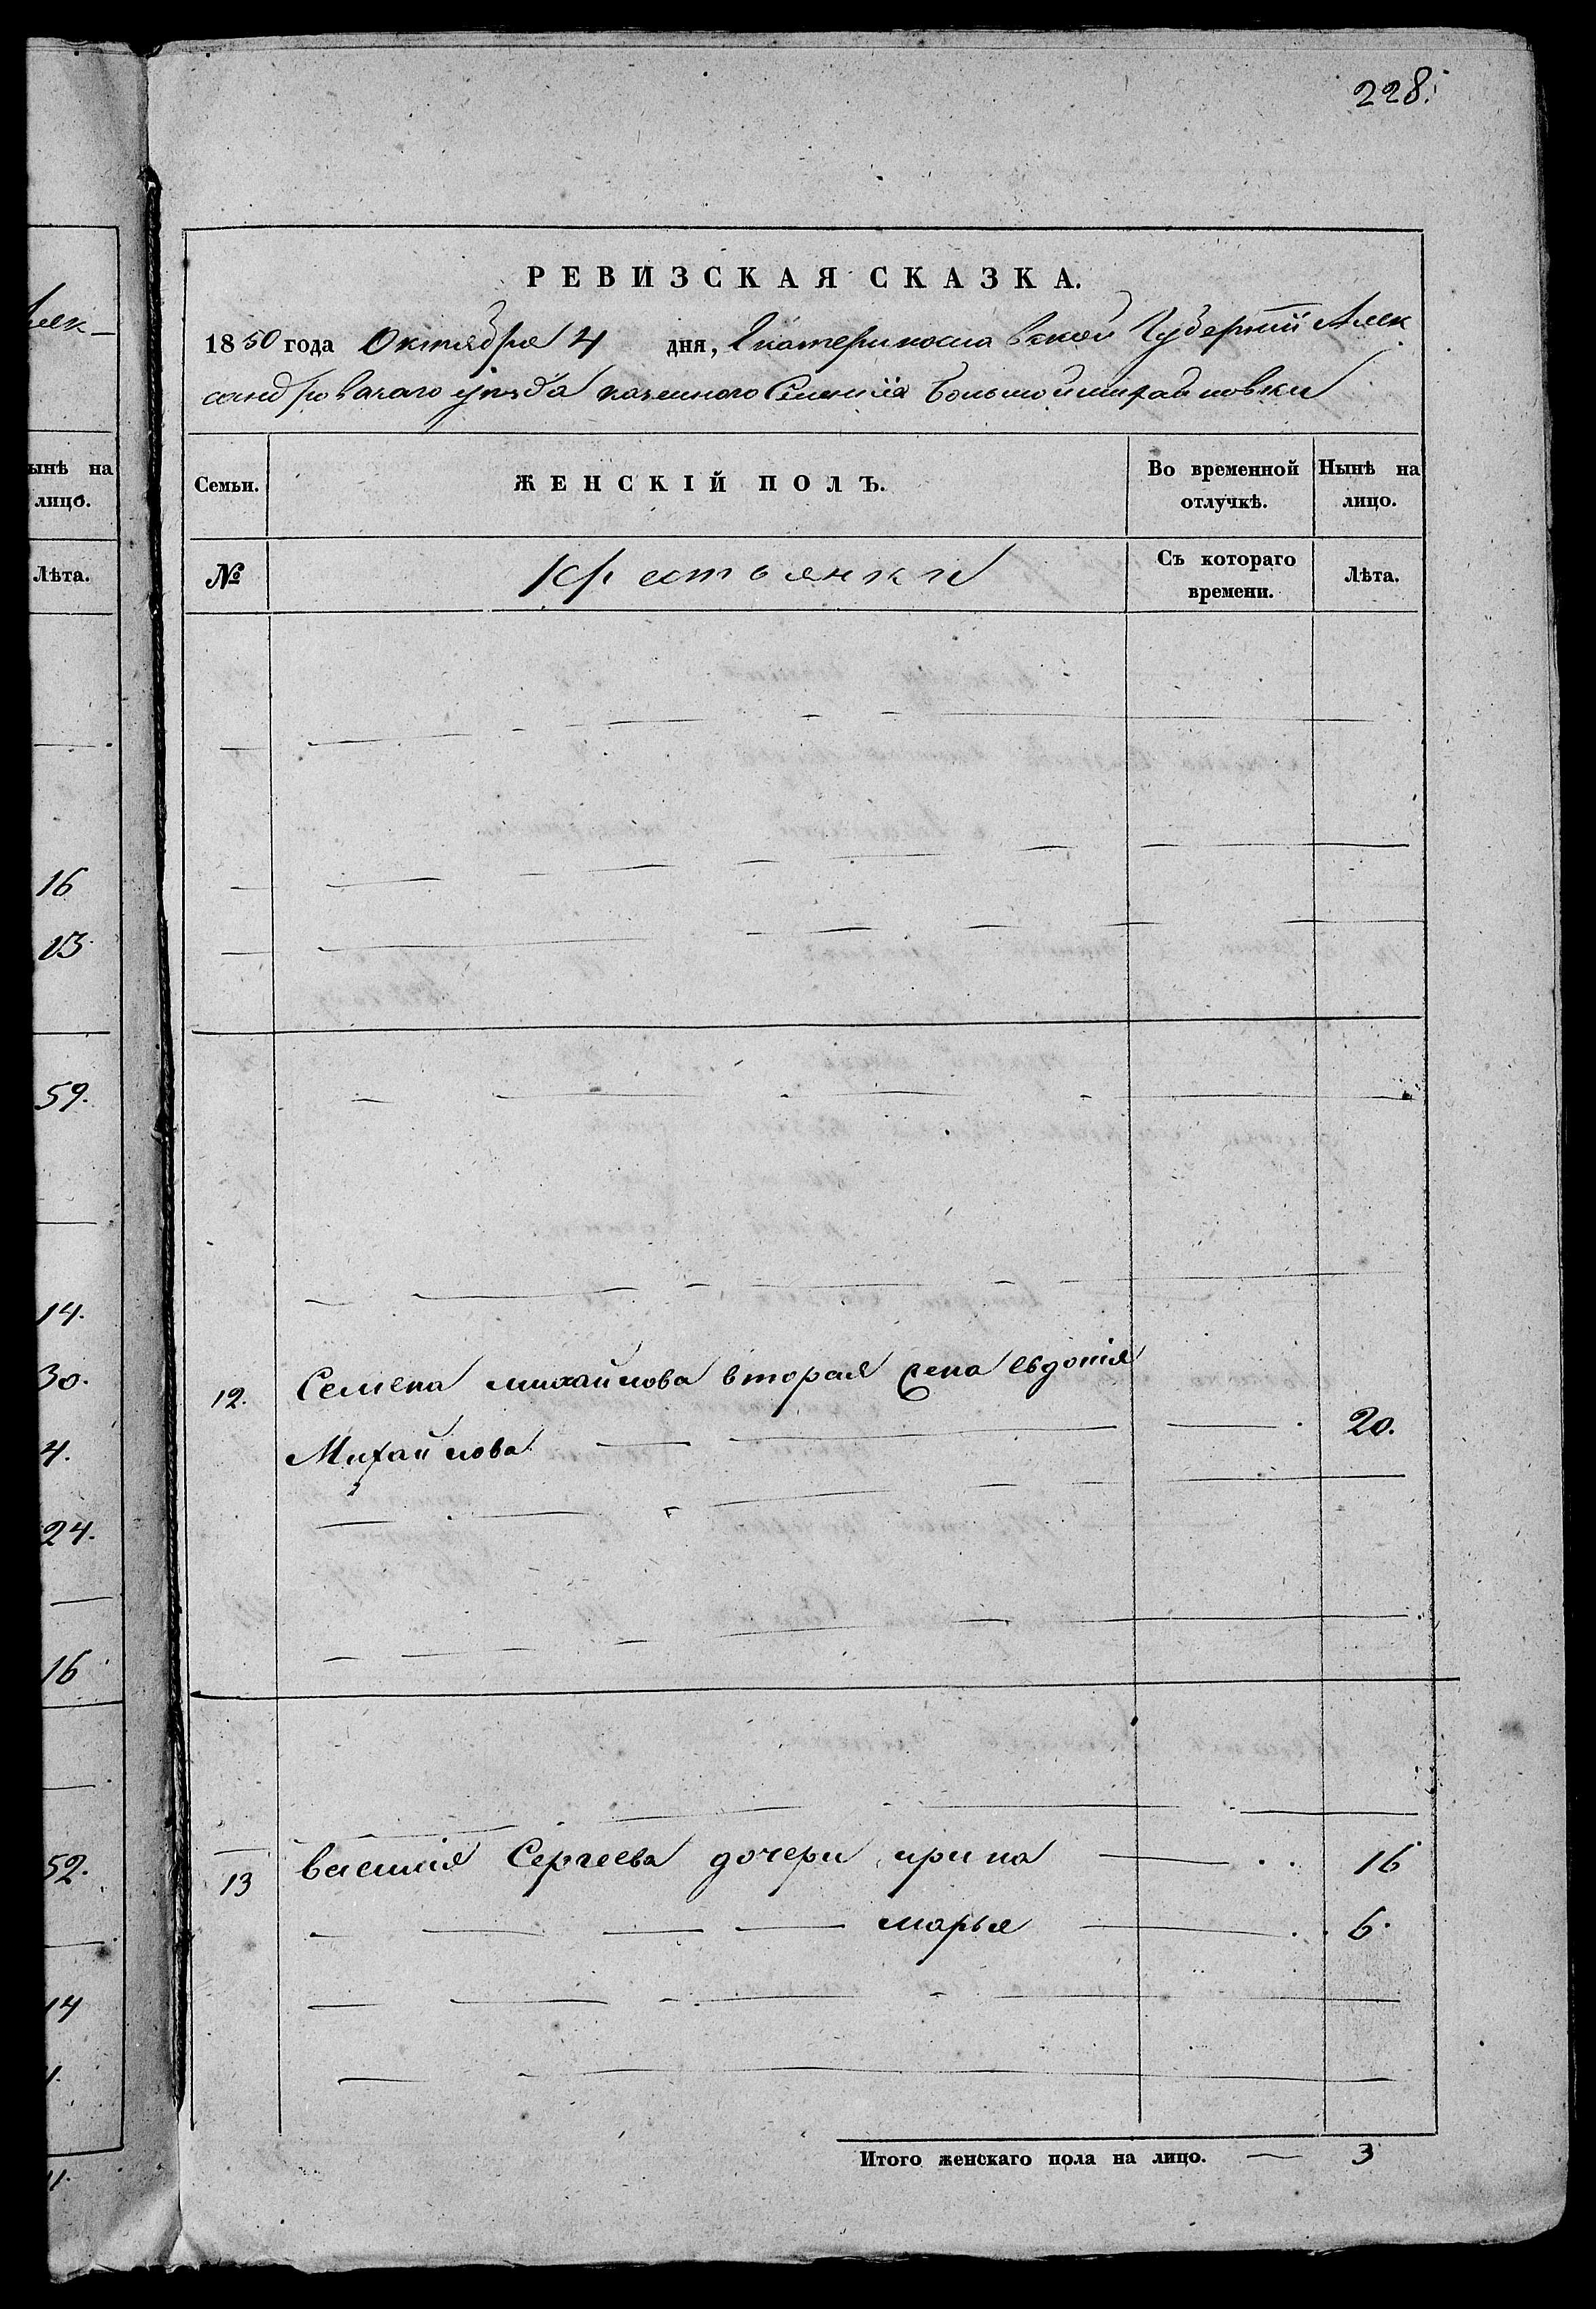 лек-
228.
РЕВИЗСКАЯ СКАЗКА.
1850 года Октября 4 дня, Екатеринославской Губерніи Алек
сандровскаго уѣзда казеннаго Селенія Большой михайловки
ынѣ на
лицо.
Лѣта.
Семьи.
ЖЕНСКІЙ ПОЛЪ.
Во временной
отлучкѣ.
Нынѣ на
лицо.
№
Крестьянки
Съ котораго
времени.
Лѣта.
16
13.
59.
14.
30.
4.
24.
16
52.
14
12. Семена михайлова вторая жена евдокія
Михайлова 20.
13 василія Сергеева дочери ирина 16
марья 6.
Итого женскаго пола на лицо. 3